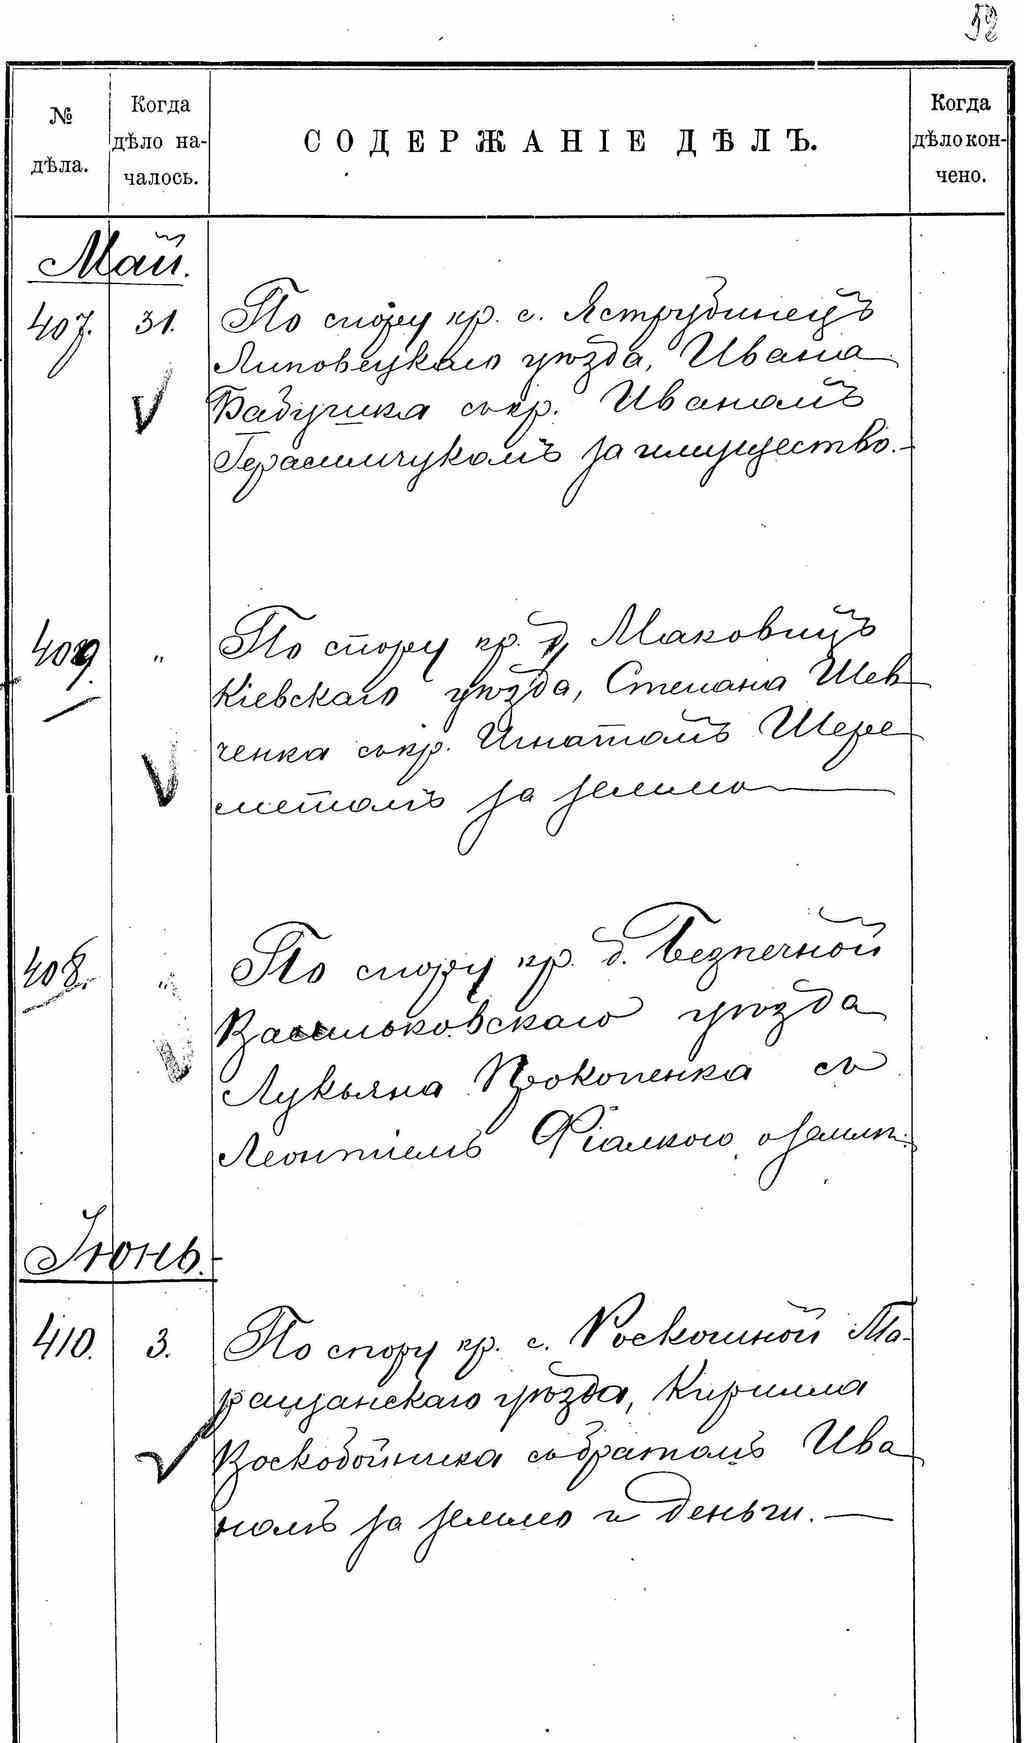 52
№ дѣла.
Когда дѣло на-чалось.
СОДЕРЖАНІЕ ДѢЛЪ.
Когда дѣло кон-чено.
Май.
407. 31. По спору кр. с. Яструбинецъ
Липовецкаго уѣзда, Ивана
Бабушка съ кр. Иваномъ
Герасимчукомъ за имущество.-
409. " По спору кр. д. Маковищъ
Кіевскаго уѣзда, Степана Шев
ченка съ кр. Игнатомъ Шере
метомъ за землю —
408. " По спору кр. д. Безпечной
Васильковскаго уѣзда
Лукьяна Прокопенка съ
Леонтіемъ Фіалкою о землѣ.
Іюнь.-
410. 3. По спору кр. с. Роскошной Та-
ращанскаго уѣзда, Кирилла
Воскобойника съ братомъ Ива
номъ за землю и деньги. —